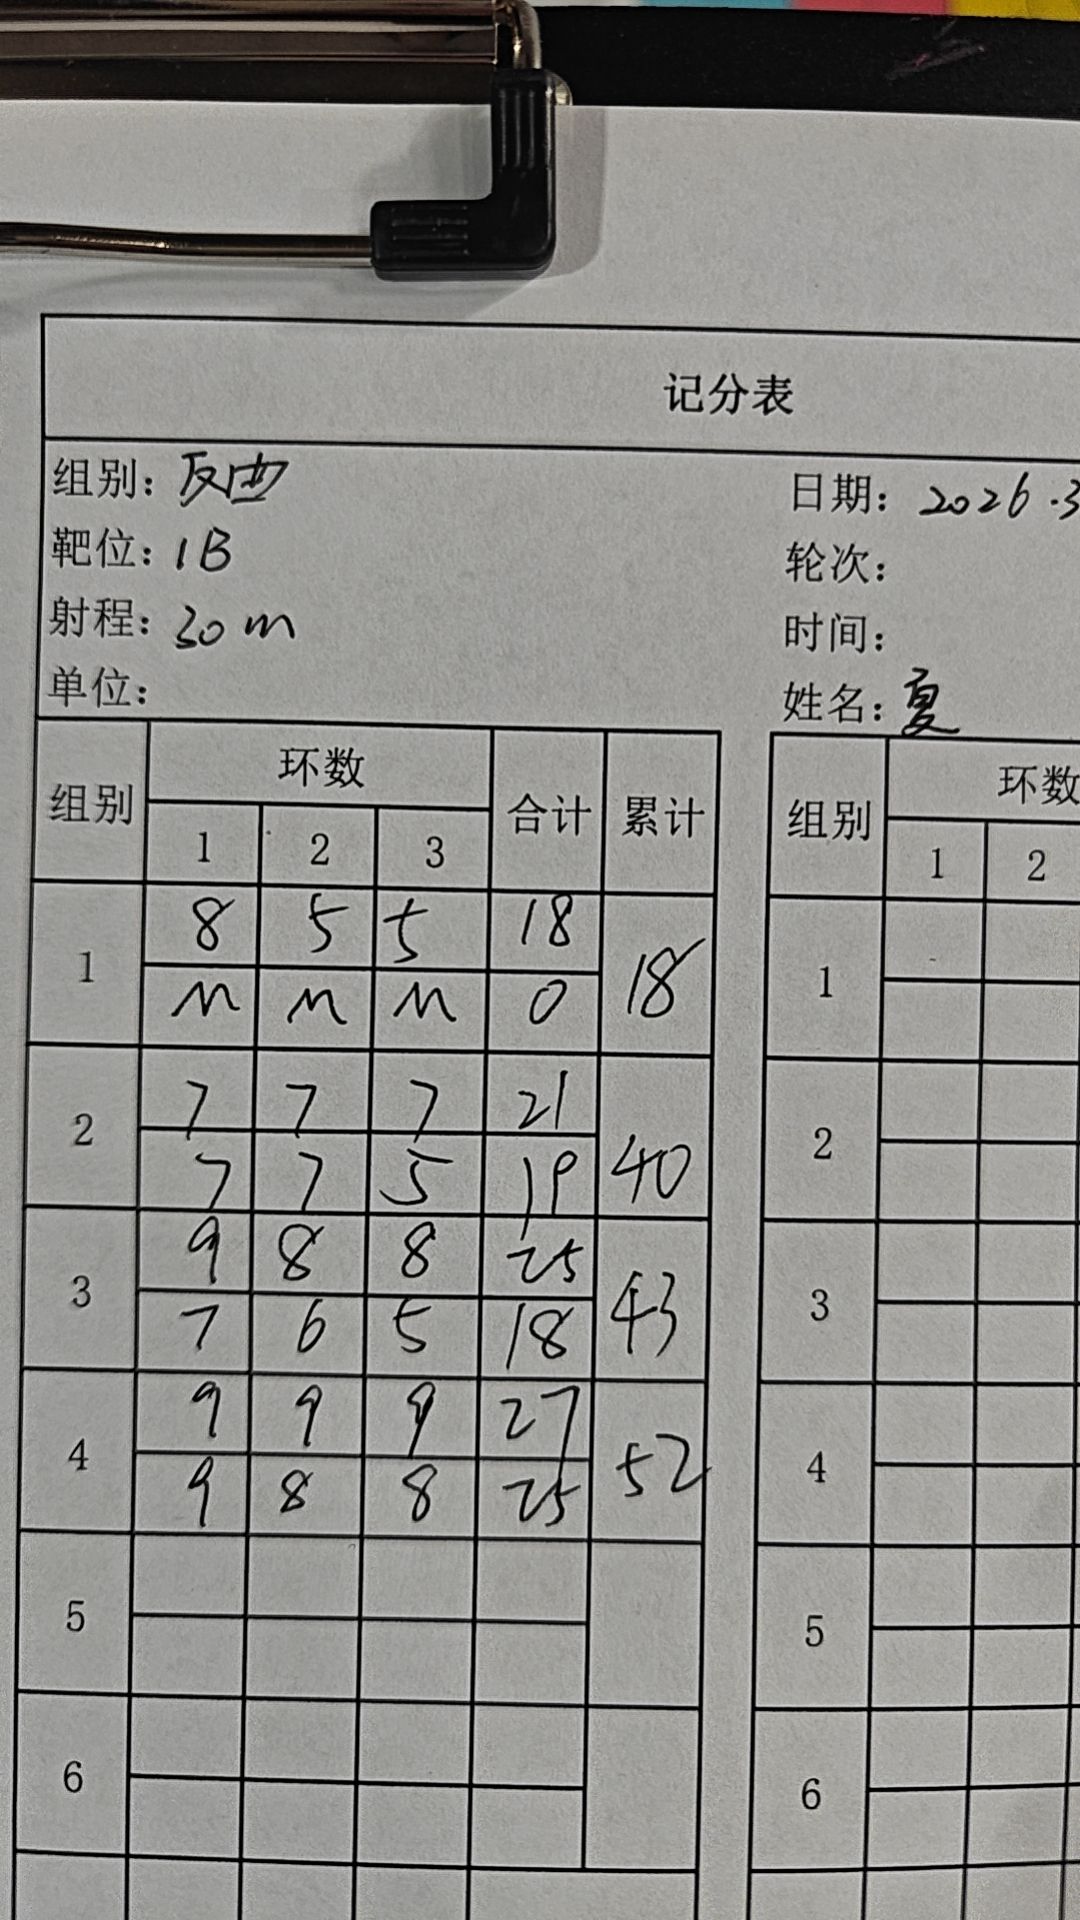 记分表
组别：反曲
日期：2026.3
靶位：1B
轮次：
射程：30m
时间：
单位：
姓名：夏
组别 环数 合计 累计
1 2 3
1 8 5 5 18 18
M M M 0
2 7 7 7 21 40
7 7 5 19
3 9 8 8 25 43
7 6 5 18
4 9 9 9 27 52
9 8 8 25
5
6
组别 环数
1 2
1
2
3
4
5
6